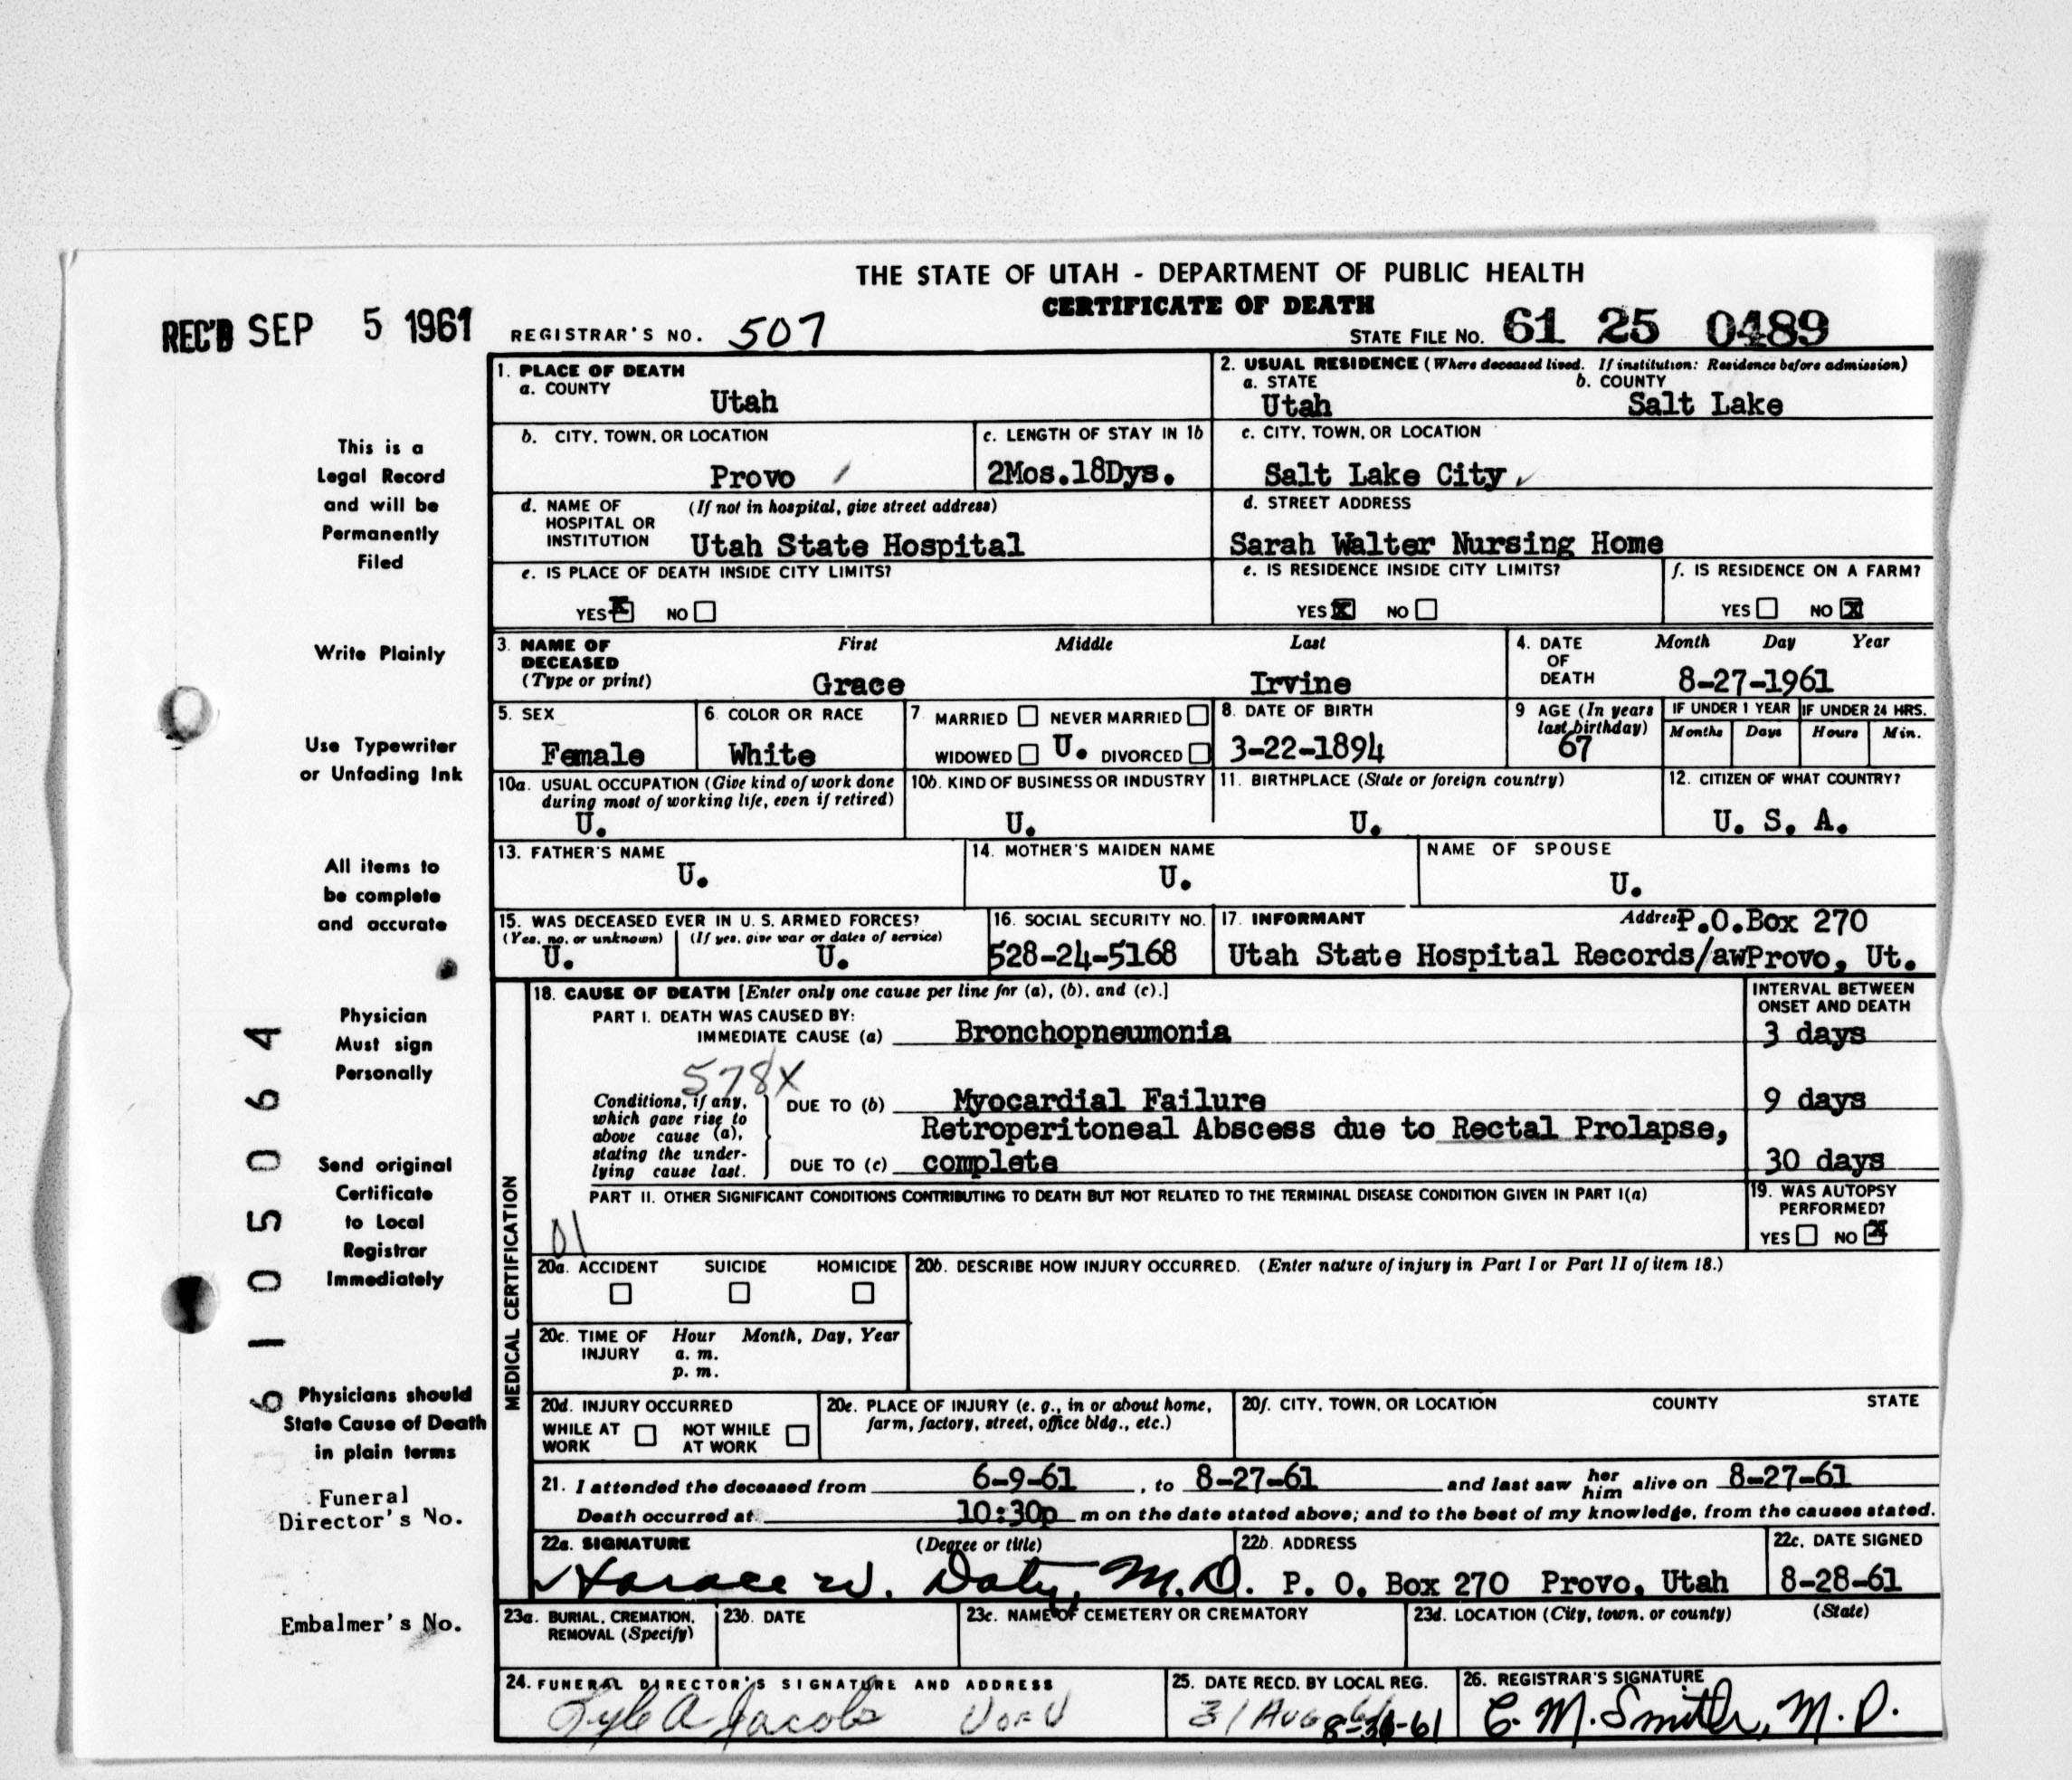 THE STATE OF UTAH - DEPARTMENT OF PUBLIC HEALTH
CERTIFICATE OF DEATH
REC'D SEP 5 1961
REGISTRAR'S NO. 507
STATE FILE NO. 61 25 0489
1. PLACE OF DEATH
a. COUNTY
Utah
2. USUAL RESIDENCE (Where deceased lived. If institution: Residence before admission)
a. STATE b. COUNTY
Utah Salt Lake
b. CITY, TOWN, OR LOCATION
Provo
c. LENGTH OF STAY IN 1b
2Mos.18Dys.
c. CITY, TOWN, OR LOCATION
Salt Lake City
d. NAME OF HOSPITAL OR INSTITUTION (If not in hospital, give street address)
Utah State Hospital
d. STREET ADDRESS
Sarah Walter Nursing Home
e. IS PLACE OF DEATH INSIDE CITY LIMITS?
YES X NO
e. IS RESIDENCE INSIDE CITY LIMITS?
YES X NO
f. IS RESIDENCE ON A FARM?
YES NO X
3. NAME OF DECEASED (Type or print)
First Middle Last
Grace Irvine
4. DATE OF DEATH
Month Day Year
8-27-1961
5. SEX
Female
6. COLOR OR RACE
White
7. MARRIED NEVER MARRIED
WIDOWED U. DIVORCED
8. DATE OF BIRTH
3-22-1894
9 AGE (In years last birthday)
67
IF UNDER 1 YEAR IF UNDER 24 HRS.
Months Days Hours Min.
10a. USUAL OCCUPATION (Give kind of work done during most of working life, even if retired)
U.
10b. KIND OF BUSINESS OR INDUSTRY
U.
11. BIRTHPLACE (State or foreign country)
U.
12. CITIZEN OF WHAT COUNTRY?
U. S. A.
13. FATHER'S NAME
U.
14. MOTHER'S MAIDEN NAME
U.
NAME OF SPOUSE
U.
15. WAS DECEASED EVER IN U. S. ARMED FORCES?
(Yes, no, or unknown) (If yes, give war or dates of service)
U. U.
16. SOCIAL SECURITY NO.
528-24-5168
17. INFORMANT Address P.O.Box 270
Utah State Hospital Records/aw Provo, Ut.
MEDICAL CERTIFICATION
18. CAUSE OF DEATH [Enter only one cause per line for (a), (b), and (c).]
INTERVAL BETWEEN ONSET AND DEATH
PART I. DEATH WAS CAUSED BY:
IMMEDIATE CAUSE (a) Bronchopneumonia 3 days
578X
Conditions, if any, which gave rise to above cause (a), stating the underlying cause last.
DUE TO (b) Myocardial Failure 9 days
Retroperitoneal Abscess due to Rectal Prolapse,
DUE TO (c) complete 30 days
PART II. OTHER SIGNIFICANT CONDITIONS CONTRIBUTING TO DEATH BUT NOT RELATED TO THE TERMINAL DISEASE CONDITION GIVEN IN PART I(a)
01
19. WAS AUTOPSY PERFORMED?
YES NO X
20a. ACCIDENT SUICIDE HOMICIDE
20b. DESCRIBE HOW INJURY OCCURRED. (Enter nature of injury in Part I or Part II of item 18.)
20c. TIME OF INJURY Hour Month, Day, Year
a. m.
p. m.
20d. INJURY OCCURRED
WHILE AT WORK NOT WHILE AT WORK
20e. PLACE OF INJURY (e. g., in or about home, farm, factory, street, office bldg., etc.)
20f. CITY, TOWN, OR LOCATION COUNTY STATE
21. I attended the deceased from 6-9-61, to 8-27-61 and last saw her him alive on 8-27-61
Death occurred at 10:30p m on the date stated above; and to the best of my knowledge, from the causes stated.
22a. SIGNATURE (Degree or title)
Horace W. Doty, M.D.
22b. ADDRESS
P. O. Box 270 Provo, Utah
22c. DATE SIGNED
8-28-61
23a. BURIAL, CREMATION, REMOVAL (Specify)
23b. DATE
23c. NAME OF CEMETERY OR CREMATORY
23d. LOCATION (City, town, or county) (State)
24. FUNERAL DIRECTOR'S SIGNATURE AND ADDRESS
Lyle A Jacobs U of U
25. DATE RECD. BY LOCAL REG.
31 Aug
26. REGISTRAR'S SIGNATURE
C. M. Smith, M. D.
This is a
Legal Record
and will be
Permanently
Filed
Write Plainly
Use Typewriter
or Unfading Ink
All items to
be complete
and accurate
Physician
Must sign
Personally
Send original
Certificate
to Local
Registrar
Immediately
Physicians should
State Cause of Death
in plain terms
Funeral
Director's No.
Embalmer's No.
6105064